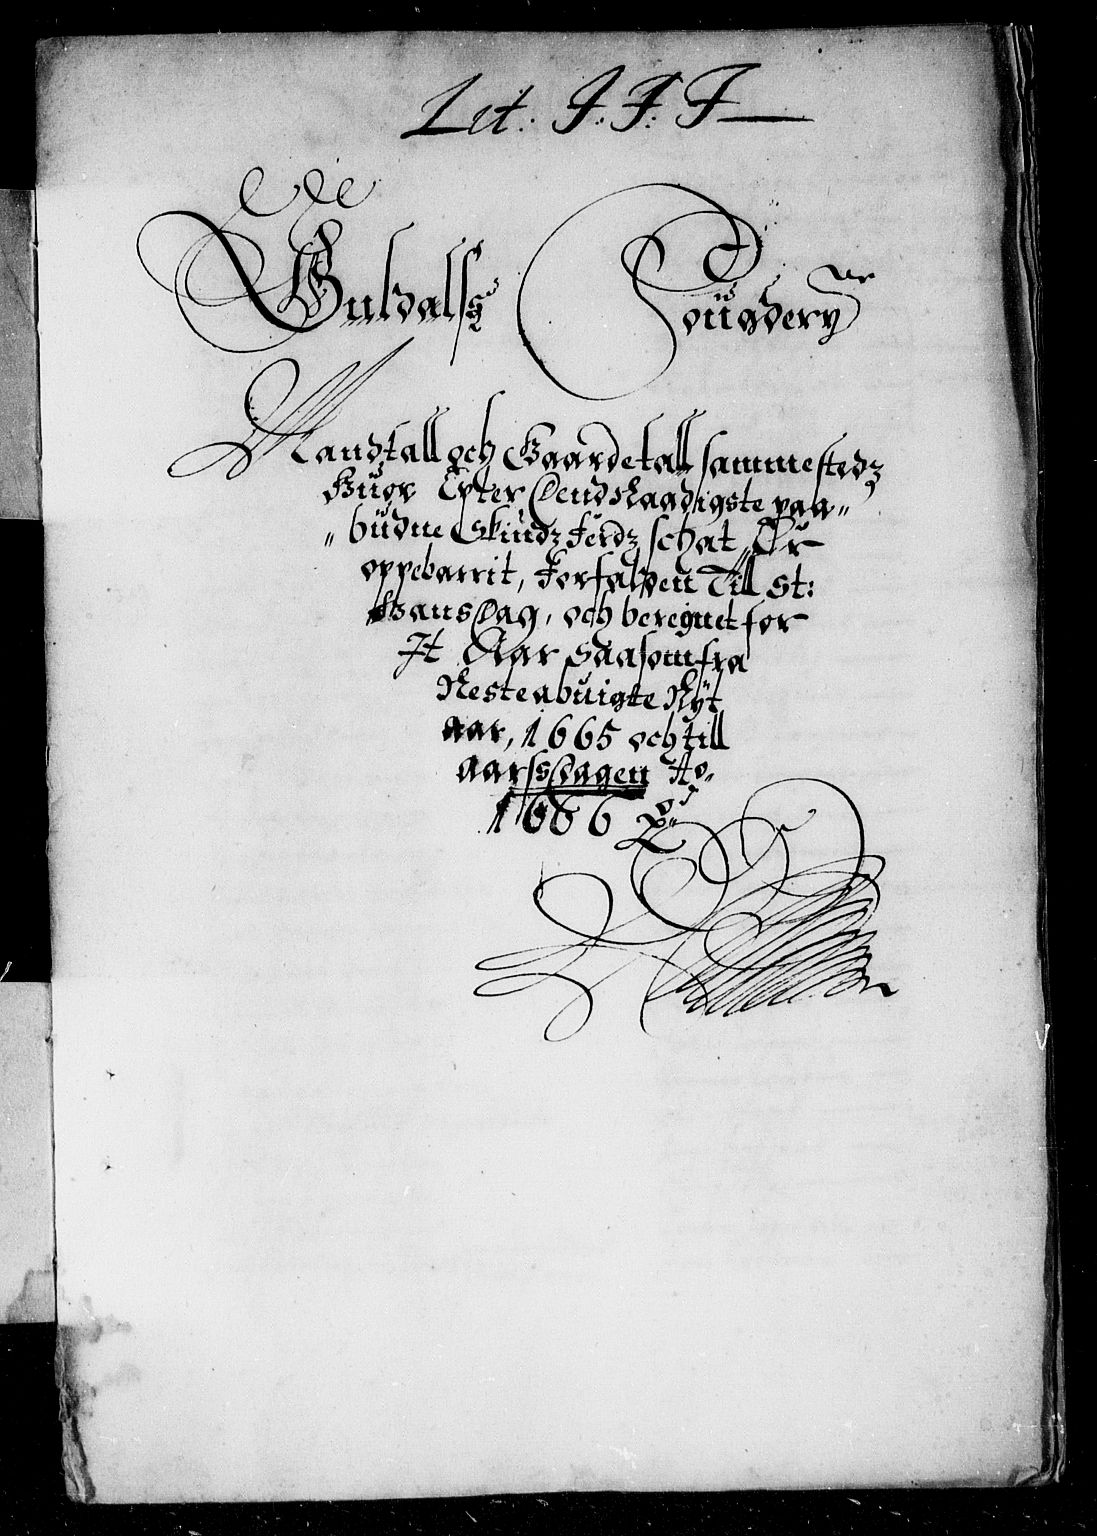 Lit: F: F: F
Guldalss Fougdery
Mandtall och Gaardetall sammestedz
Huor Epter Dend Naadigste paa„
„büdne Skiudz ferdz schat, Er
oppebarrit, forfalden Till St:
Hans Dag, och beregnet for
It Aar saasom fra
Neste abuigte Nÿt
aar, 1665 och till
aarssdagen Ao.
1666